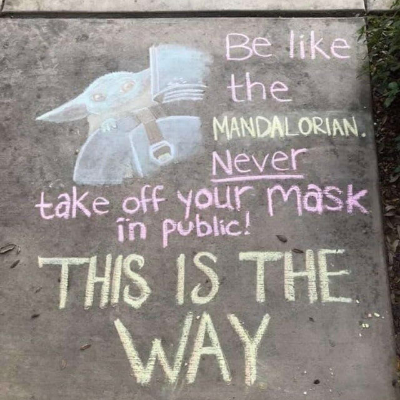 Be like
the
MANDALORIAN.
Never
take off your mask
in public!
THIS IS THE
WAY